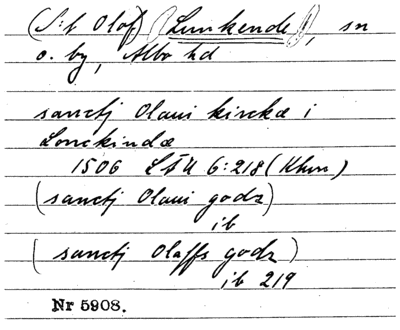 (S:t Olof) (Lunkende), sn
o. by, Albo hd
sanctj Olaui kircka i
Lonckindæ
1506 LÄU 6:218 (Khvn)
(sanctj Olaui godz)
ib
(sanctj Olaffs godz)
ib 219
Nr 5908.